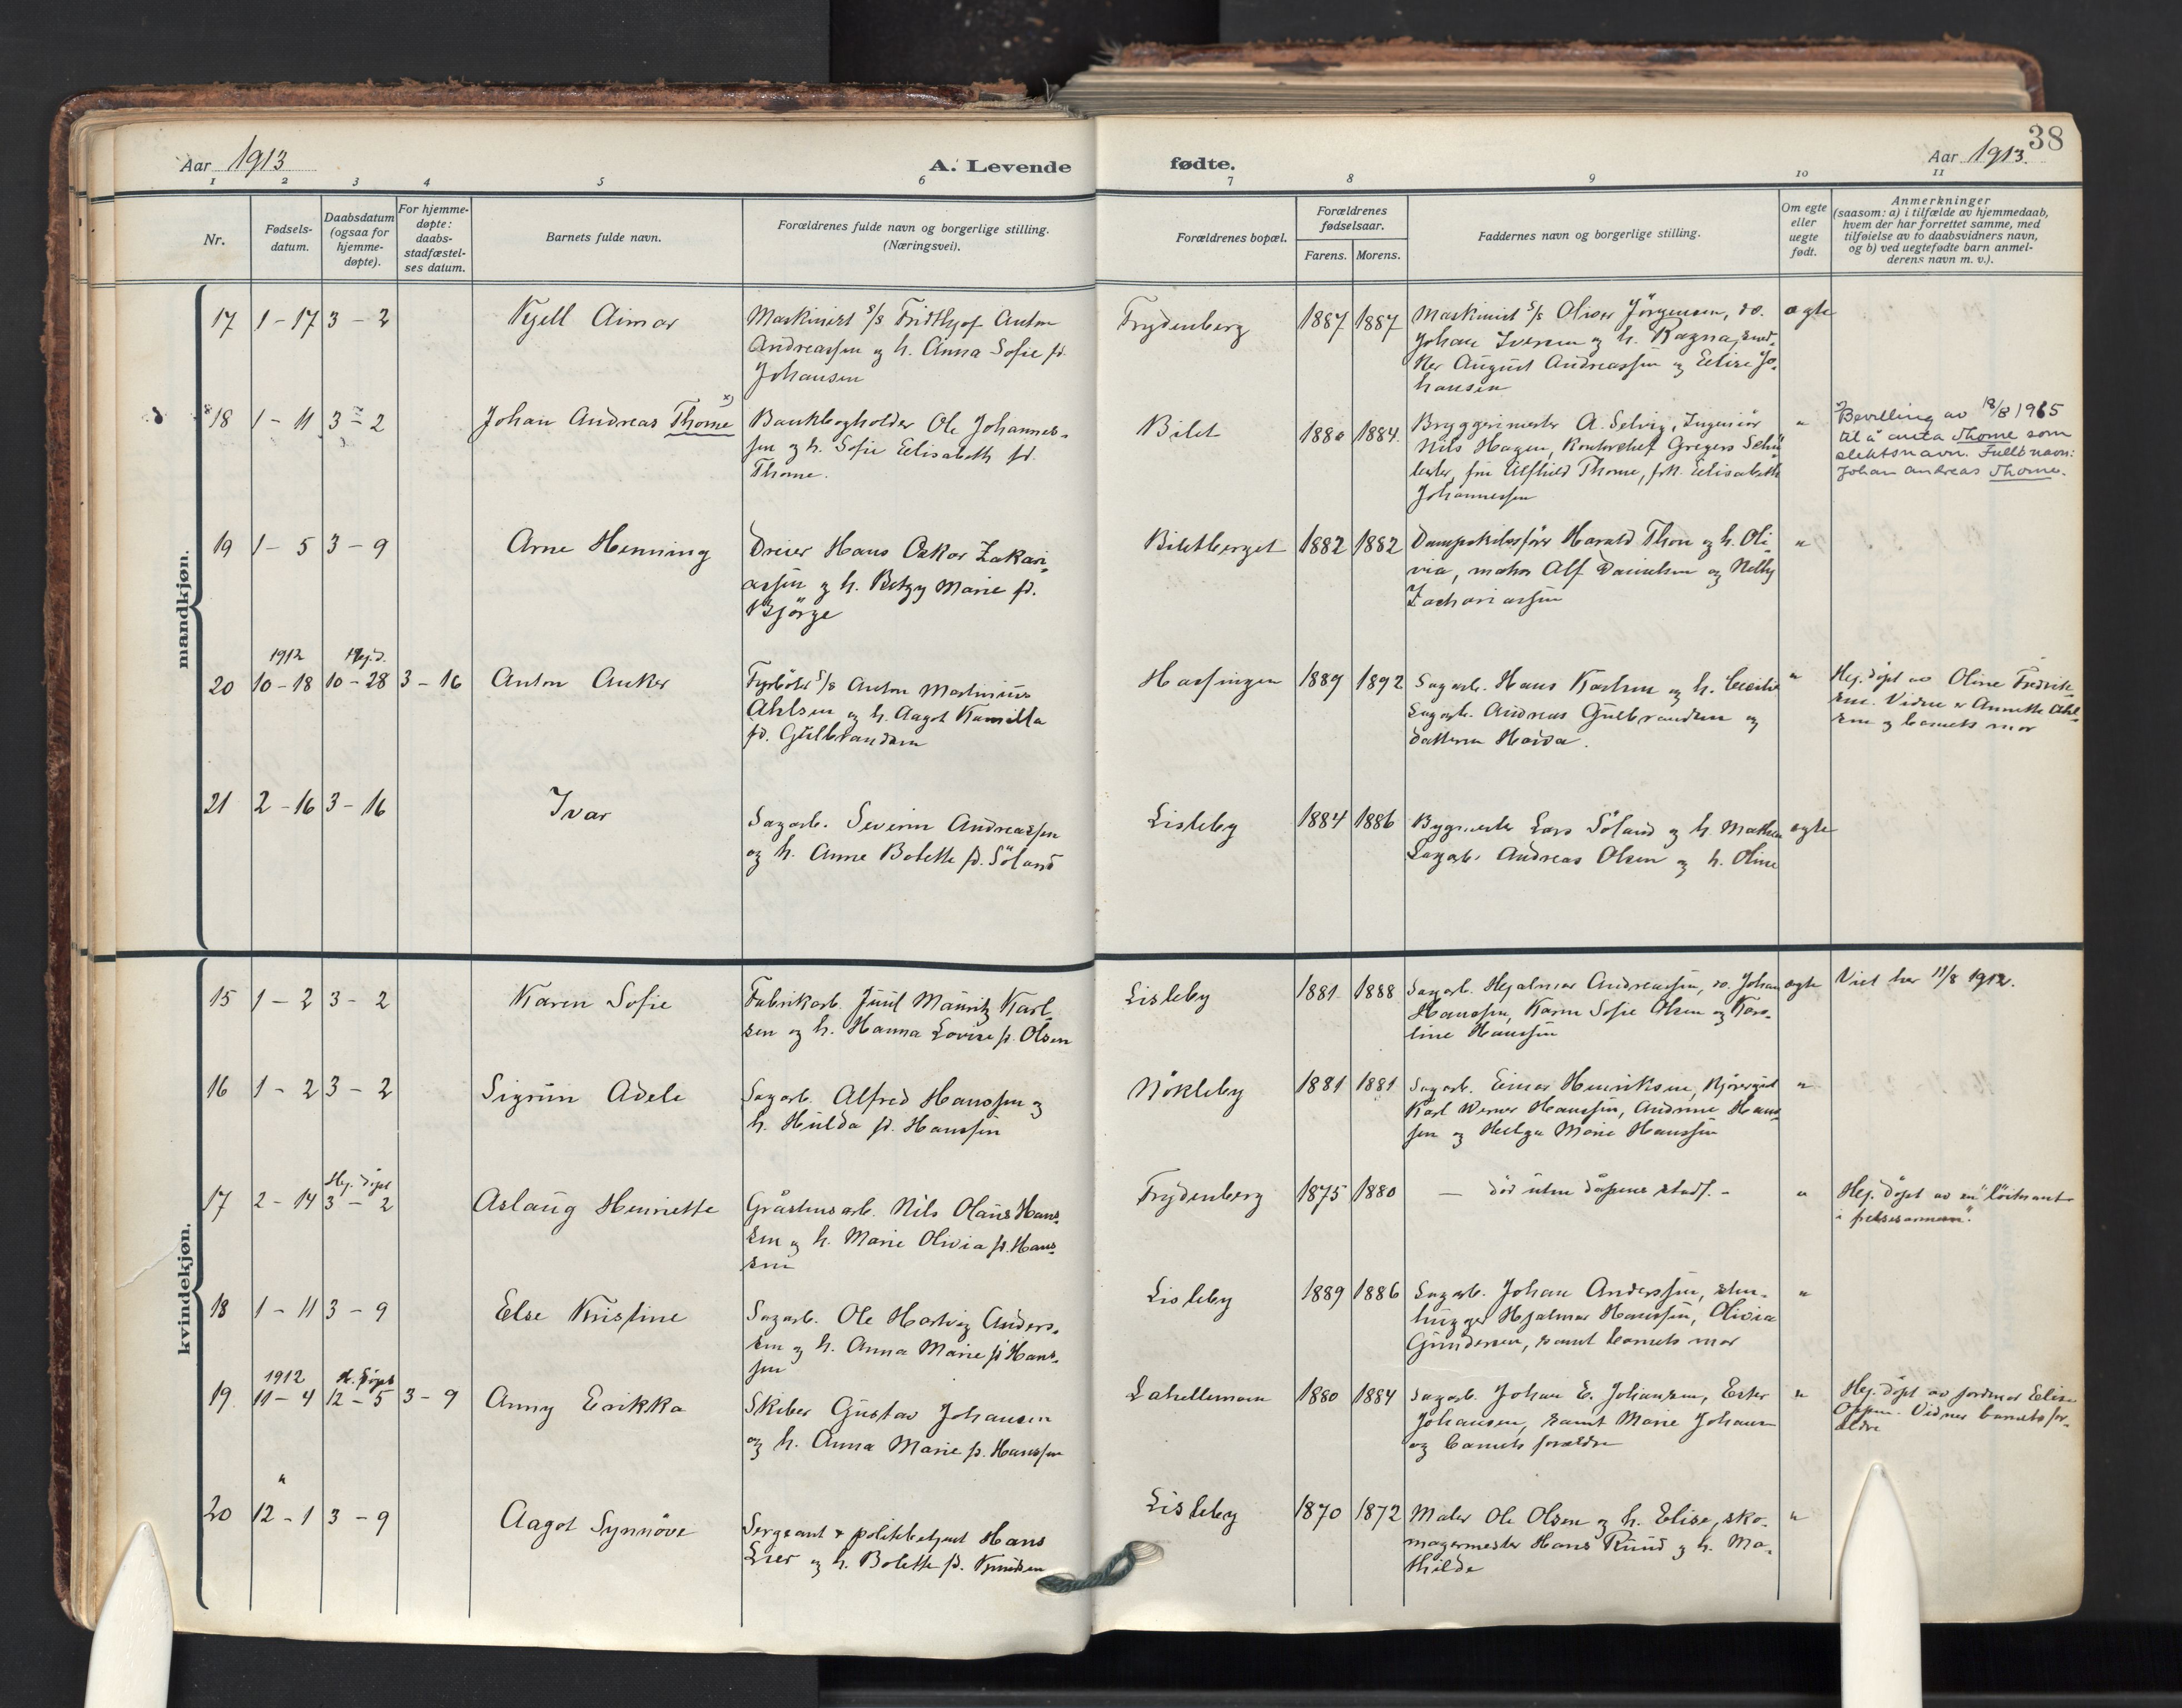 38
Aar 1913
A. Levende
fødte.
Aar 1913.
1 2 3 4 5 6 7 8 9 10 11
Nr.
Fødsels-
datum.
Daabsdatum
(ogsaa for
hjemme-
døpte).
For hjemme-
døpte:
daabs-
stadfæstel-
ses datum.
Barnets fulde navn.
Forældrenes fulde navn og borgerlige stilling.
(Næringsvei).
Forældrenes bopæl.
Forældrenes
fødselsaar.
Farens. Morens.
Faddernes navn og borgerlige stilling.
Om egte
eller
uegte
født.
Anmerkninger
(saasom: a) i tilfælde av hjemmedaab,
hvem der har forrettet samme, med
tilføielse av to daabsvidners navn,
og b) ved uegtefødte barn anmel-
derens navn m. v.).
mandkjøn.
17 1-17 3-2 Kjell Aimar
Maskinist s/s Fridthjof Anton
Andreassen og h. Anna Sofie fd.
Johansen
Frydenberg 1887 1887
Maskinist s/s Oliver Jörgensen, do.
Johan Iversen og h. Ragna, sned-
ker August Andreassen og Elise Jo-
hansen
egte
18 1-11 3-2 Johan Andreas Thome x)
Bankbogholder Ole Johannes-
sen og h. Sofie Elisabeth fd.
Thome.
Bilet 1880 1884
Bryggerimester A. Selvig, Ingeniör
Nils Hagen, Kontorchef Gregers
Thome, frk. Elisabeth
Johannessen
"
x) Bevilling av 18/8 1965
til å anta Thome som
slektsnavn. Fullt navn:
Johan Andreas Thome.
19 1-5 3-9 Arne Henning
Dreier Hans Oskar Zakari-
assen og h. Betzy Marie fd.
Björge
Biletberget 1882 1882
Dampskibsförer Harald Thon og h. Oli-
via, Alf Danielsen og Nelly
Zachariassen
"
1912 Hj. d.
20 10-18 10-28 3-16 Anton Anker
Fyrböter s/s Anton Martinius
Ahlsen og h. Aagot Kamilla
fd. Gulbrandsen
Hassingen 1889 1892
Sagarb. Hans Karlsen og h. Cecilie
Sagarb. Andreas Gulbrandsen og
datteren Harda.
"
Hj. döpt av Oline Fredrik-
sen. Vidne er Annette Ahl-
sen og barnets mor
21 2-16 3-16 Ivar
Sagarb. Severin Andreassen
og h. Anne Bolette fd. Söland
Lisleby 1884 1886
Bygmester Lars Söland og h. Mathea
Sagarb. Andreas Olsen og h. Oline
egte
kvindekjøn.
15 1-2 3-2 Karen Sofie
Fabrikarb. Juul Mauritz Karl-
sen og h. Hanna Lovise fd. Olsen
Lisleby 1881 1888
Sagarb. Hjalmar Andreassen, do. Johan
Hanssen, Karen Sofie Olsen og Karo-
line Hanssen
egte
Viet her 11/8 1912.
16 1-2 3-2 Sigrun Adele
Sagarb. Alfred Hanssen og
h. Hulda fd. Hanssen
Nökleby 1881 1881
Sagarb. Einar Henriksen,
Karl Werner Hanssen, Andrine Hans-
sen og Helga Marie Hanssen
"
Hj. döpt
17 2-14 3-2 Aslaug Henriette
Gråstensarb. Nils Olaus Han-
sen og h. Marie Olivia fd. Han-
sen
Frydenberg 1875 1880
— död uten dåpens stadf. -
"
Hj. döpt av en "löitnant
i frelsesarmeen".
18 1-11 3-9 Else Kristine
Sagarb. Ole Hartvig Anders-
sen og h. Anna Marie fd Hans-
sen
Lisleby 1889 1886
Sagarb. Johan Anderssen, sten-
hugger Hjalmar Hanssen, Olivia
Gundersen, samt barnets mor
"
1912 Hj. döpt
19 11-4 12-5 3-9 Anny Erikka
Skiber Gustav Johansen
og h. Anna Marie fd. Hanssen
Lahellemoen 1880 1884
Sagarb. Johan E. Johansen, Ester
Johansen, samt Marie Johansen
og barnets forældre
"
Hj. döpt av jordmor Elise
Oppen. Vidner barnets for-
ældre
"
20 12-1 3-9 Aagot Synnöve
Sergeant & politibetjent Hans
Lier og h. Bolette fd. Knudsen
Lisleby 1870 1872
Maler Ole Olsen og h. Elise, sko-
magermester Hans Ruud og h. Ma-
thilde
"